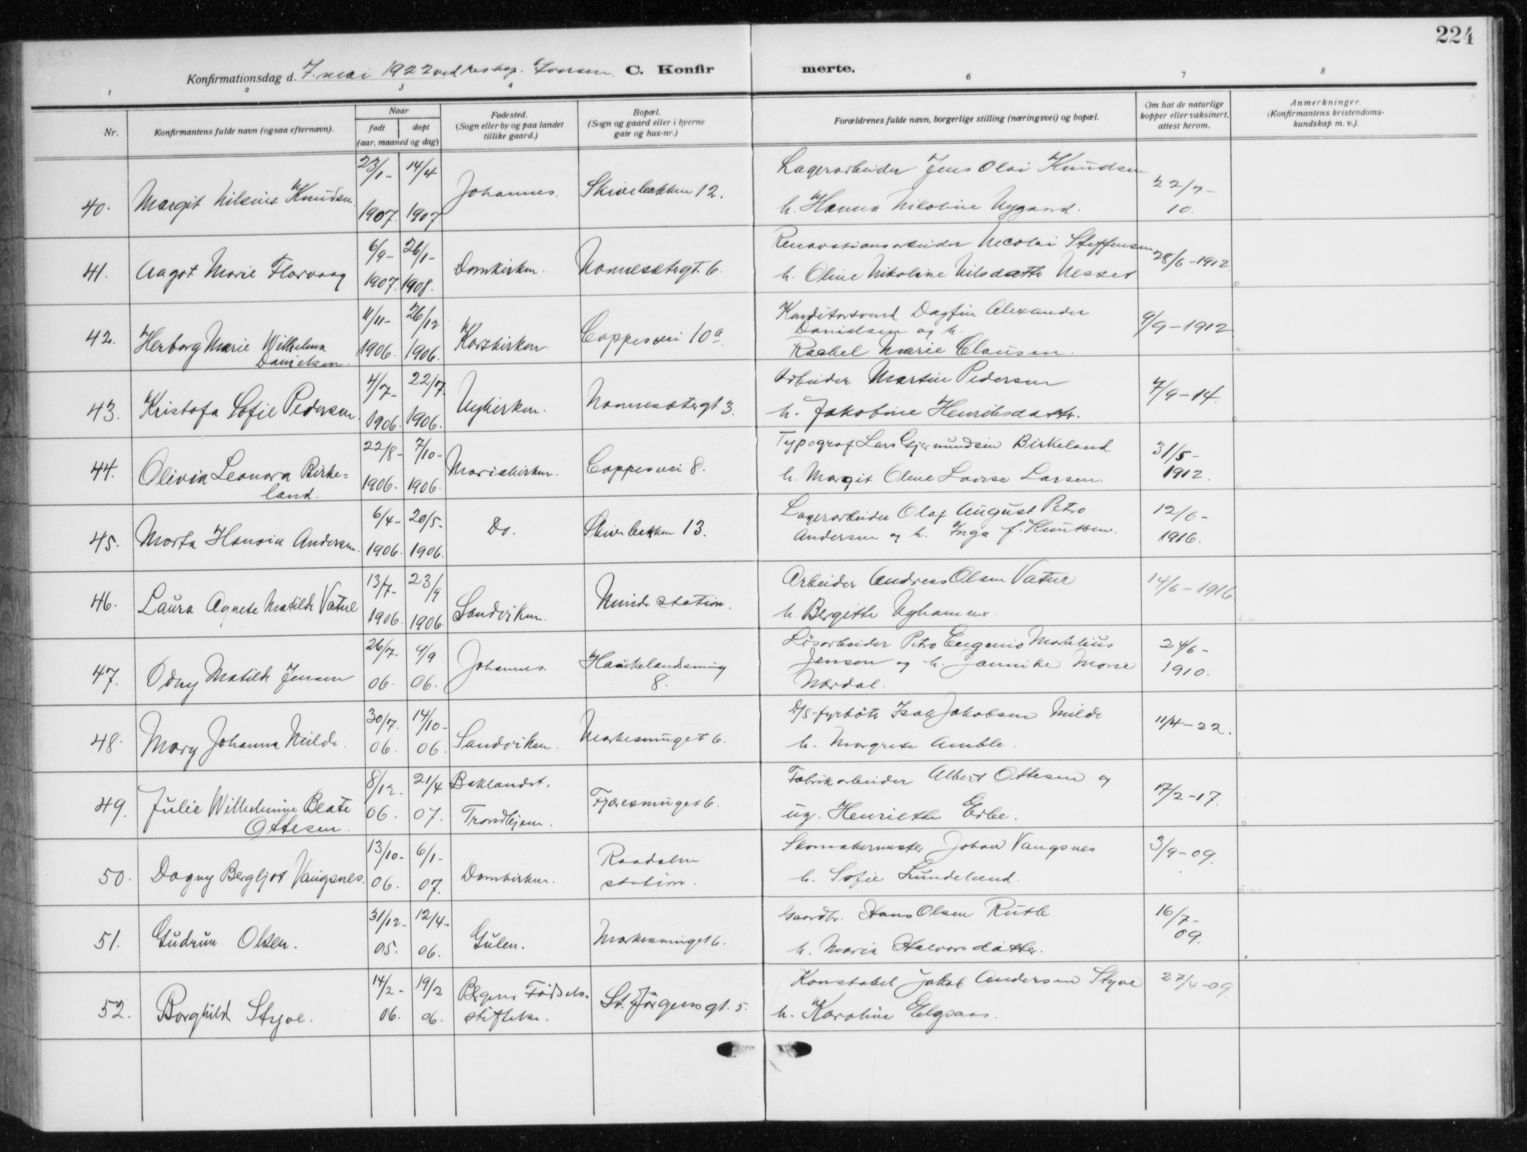 224
Konfirmationsdag d. 7. mai 1922 ved res. kap. C. Konfirmerte.
1 2 3 4 6 7 8
Nr. Konfirmantens fulde navn (ogsaa efternavn). Naar født døpt (aar, maaned og dag) Fødested. (Sogn eller by og paa landet tillike gaard.) Bopæl. (Sogn og gaard eller i byerne gate og hus-nr.) Forældrenes fulde navn, borgerlige stilling (næringsvei) og bopæl. Om hat de naturlige kopper eller vaksinert, attest herom. Anmerkninger. (Konfirmantens kristendomskundskap m. v.).
40. Margit Nilsine Knudsen 23/1- 1907. 14/4 1907 Johannes. Skivebakken 12. Lagerarbeider Jens Olai Knudsen
h. Hanna Nikoline Nygaard. 22/7- 10.
41. Aagot Marie Florvaag 6/9- 1907. 26/1- 1908. Domkirken. Nonnesætergt. 6. Renovationsarbeider Nicolai Steffensen
h. Oline Nikoline Nilsdatter Nesset 28/6-1912
42. Herborg Marie Wilhelmine Danielsen. 11/11- 1906. 26/12 1906. Korskirken Cappesvei 10a. Konditorsvend Dagfin Alexander
Danielsen og h.
Rachel Marie Clausen. 9/9-1912
43. Kristofa Sofie Pedersen 4/7- 1906. 22/7. 1906. Nykirken. Nonnesætergt 3. Arbeider Martin Pedersen
h. Jakobine Henriksdatter. 7/9-14.
44. Olivia Leonora Birke=
land. 22/8- 1906. 7/10- 1906. Mariakirken. Cappesvei 8. Typograf Lars Gjermundsen Birkeland
h. Margit Oline Lovise Larsen. 31/5- 1912.
45. Marta Hansia Andersen. 6/4- 1906. 20/5- 1906. Do. Skivebakken 13. Lagerarbeider Olaf August Petro
Andersen og h. Inga f. Knutsen. 12/6- 1916.
46. Laura Agnete Matilde Vatne 13/7- 1906. 23/9 1906 Sandviken. Minde station. Arbeider Andreas Olsen Vatne
h. Bergitte Nyhammer. 14/6-1916
47. Odny Matilde Jensen 26/7- 06. 9/9 06. Johannes. Haukelandsmug
8. Løsarbeider Petro Eugenius Martilius
Jensen og h. Jannike Marie
Nordal. 24/6- 1910.
48. Mary Johanna Milde. 30/7. 06. 14/10- 06. Sandviken. Markesmuget 6. D/S-fyrbøter Isak Jakobsen Milde
h. Margrete Amble. 11/4-22.
49. Julie Wilhelmine Beate
Ottesen. 8/12- 06. 21/4 07. Baklandet. Trondhjem. Fjøresmuget 6. Fabrikarbeider Albert Ottesen og
ug. Henriette Eide. 17/2-17.
50. Dagny Bergljot Vangsnes 13/10- 06. 6/1- 07. Domkirken. Raadalen
station. Skomakermester Johan Vangsnes
h. Sofie Lundeland. 3/9-09.
51. Gudrun Olsen. 31/12- 05. 12/4- 06. Gulen. Markesmuget 6. Gaardbr. Hans Olsen Rutle
h. Maria Halvorsdatter. 16/7- 09.
52. Borghild Styve. 14/2- 06. 19/2 06. Bergens Fødsels-
stiftelse. St. Jørgensgt. 5. Konstabel Jakob Andersen Styve
h. Karoline Elgsaas. 27/4-09.